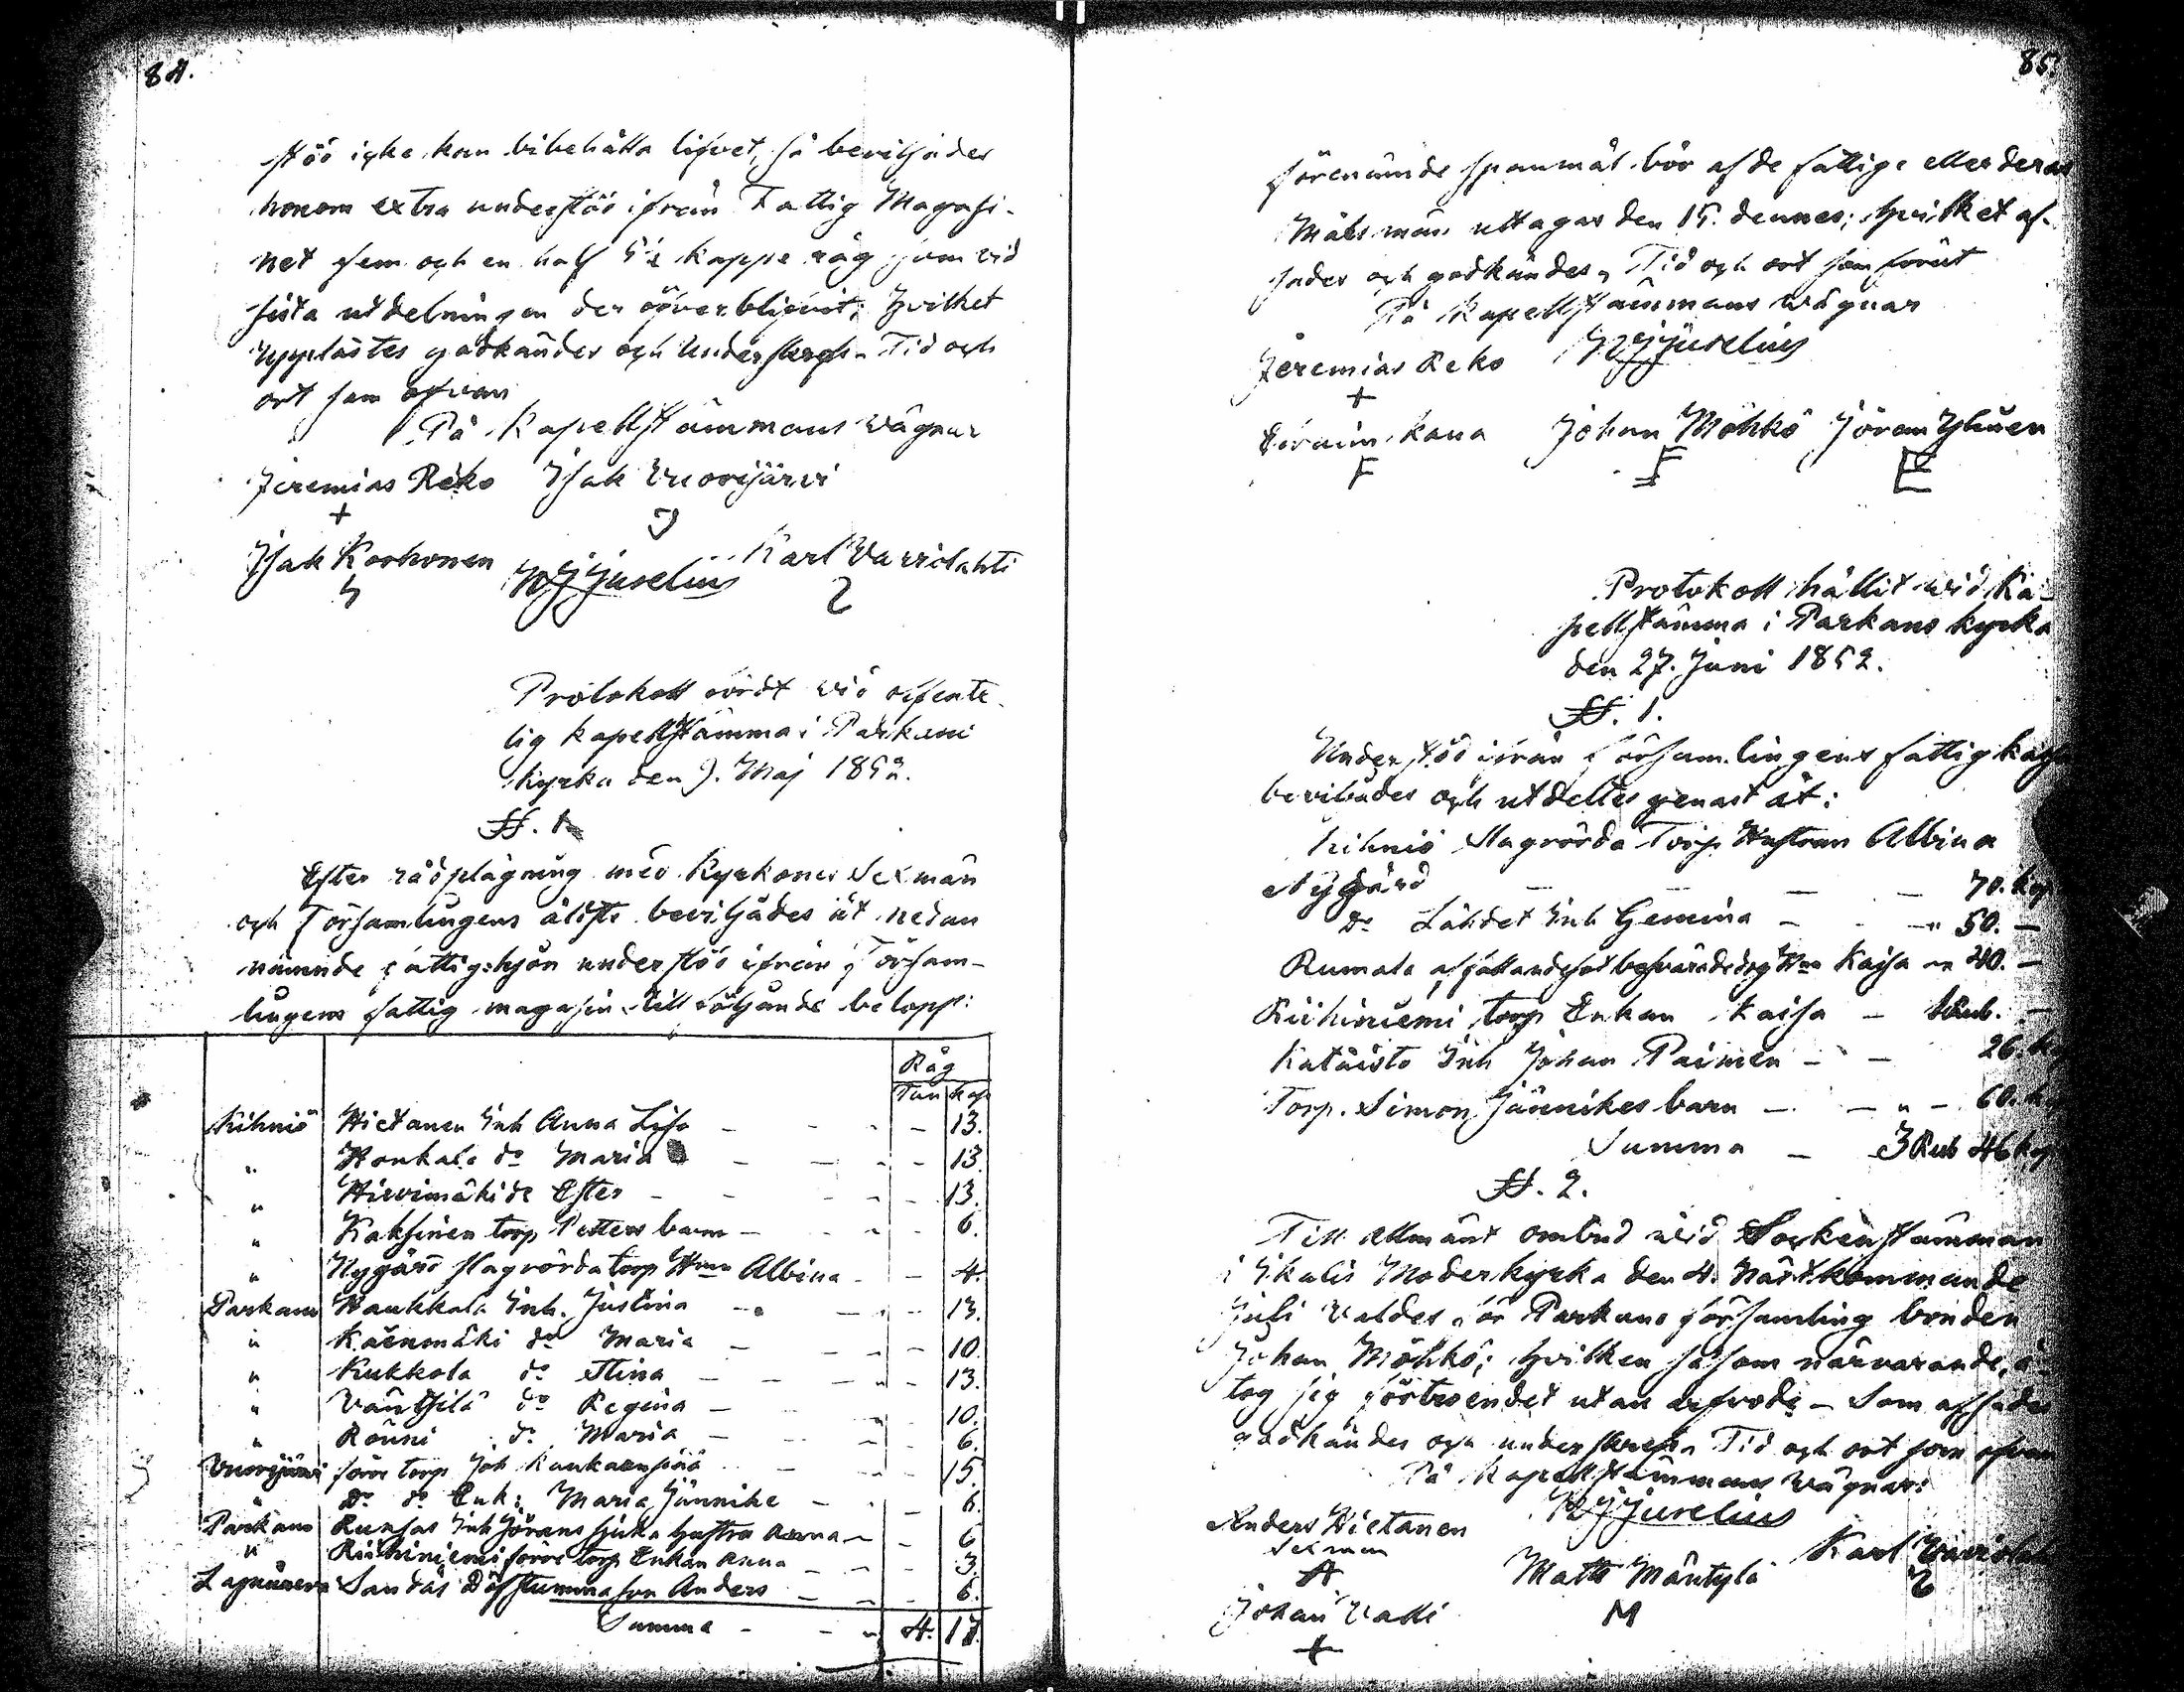 84.
stöd icke kan bibehålla lifvet, så beviljades
honom extra understöd ifrån Fattig Magasi-
net fem och en half 5½ kappe råg som vid
sista utdelningen der öfverblifvit; hvilket
upplästes godkändes och underskrefs. Tid och
ort som ofvan
På Kapellstämmans vägnar
Jeremias Reko Isak Vuorijärvi
Isak Korhonen Juselius Karl Varrislahti
Protokoll fördt vid offent-
lig kapellstämma i Parkano
kyrka den 9. Maj 1852.
§. 1.
Efter rådplägning med Kyrkones Sexmän
och Församlingens äldste beviljades åt nedan
nämnde fattighjon understöd ifrån Försam-
lingens fattig magasin till följande belopp:
Råg
Tun kap
Kihniö Hietanen Inh Anna Lisa - - - - 13.
" Honkala do Maria - - - - 13.
" Hirvimäki do Ester - - - - 13.
" Kaksinen torp Petters barn - - - 6.
" Nygård slagrörda torp Hru Albina - - 4.
Parkano Haukkala Inh. Justina - - - - 13.
" Käenmäki do Maria - - - - 10.
" Kukkola do Stina - - - - 13.
" Väntsilä do Regina - - - - 10.
" Rönni do Maria - - - - 6.
Vuorijärvi förre torp Joh Kankaanpää - - - 15.
" Do do Enk: Maria Jännike - - - 6.
Parkano Runsas Inh Jörans sjuka hustru Anna - - 6
" Riihiniemi förre torp Enkan Anna - - - 3.
Sandås Döfstumma son Anders - - - 6.
Summa - - - 4. 17.
85.
förenämnde spanmål bör af de fattige eller deras
Målsmän uttagas den 15. dennes; hvilket af-
sades och godkändes. Tid och ort som förut
På Kapellstämmans vägnar
Jeremias Reko Juselius
Efraim Kana Johan Möhkö Jöran Ylinen
Protokoll hållit vid Ka-
pellstämma i Parkano kyrka
den 27. Juni 1852.
§. 1.
Understöd ifrån församlingens fattigkassa
beviljades och utdeltes genast åt:
Kihniö slagrörda Torp. Hustrun Albina
Nygård - - - - 70. kop
Do Lähdet Inh Gemina - - - " 50. -
Rumala af fallandesot besvärade drg Hru Kaisa " 40. -
Riihiniemi torp Enkan Kaisa - 1 Rub. -
Katäisto Inh Johan Paimen - - 26. kop
Torp. Simon Jännikes barn - - " - 60. kop
Summa - 3 Rub 46 kop
§. 2.
Till allmänt ombud vid Sockenstämman
i Ikalis Moderkyrka den 4. Nästkommande
Juli valdes för Parkano församling bonden
Johan Möhkö; hvilken såsom närvarande, å-
tog sig förtroendet utan arfvode - Som afsades
godkändes och underskrefs. Tid och ort som ofvan
På Kapellstämmans vägnar:
Juselius
Anders Hietanen
Sexman
A
Matts Mäntylä Karl Varrislahti
M
Johan Valli